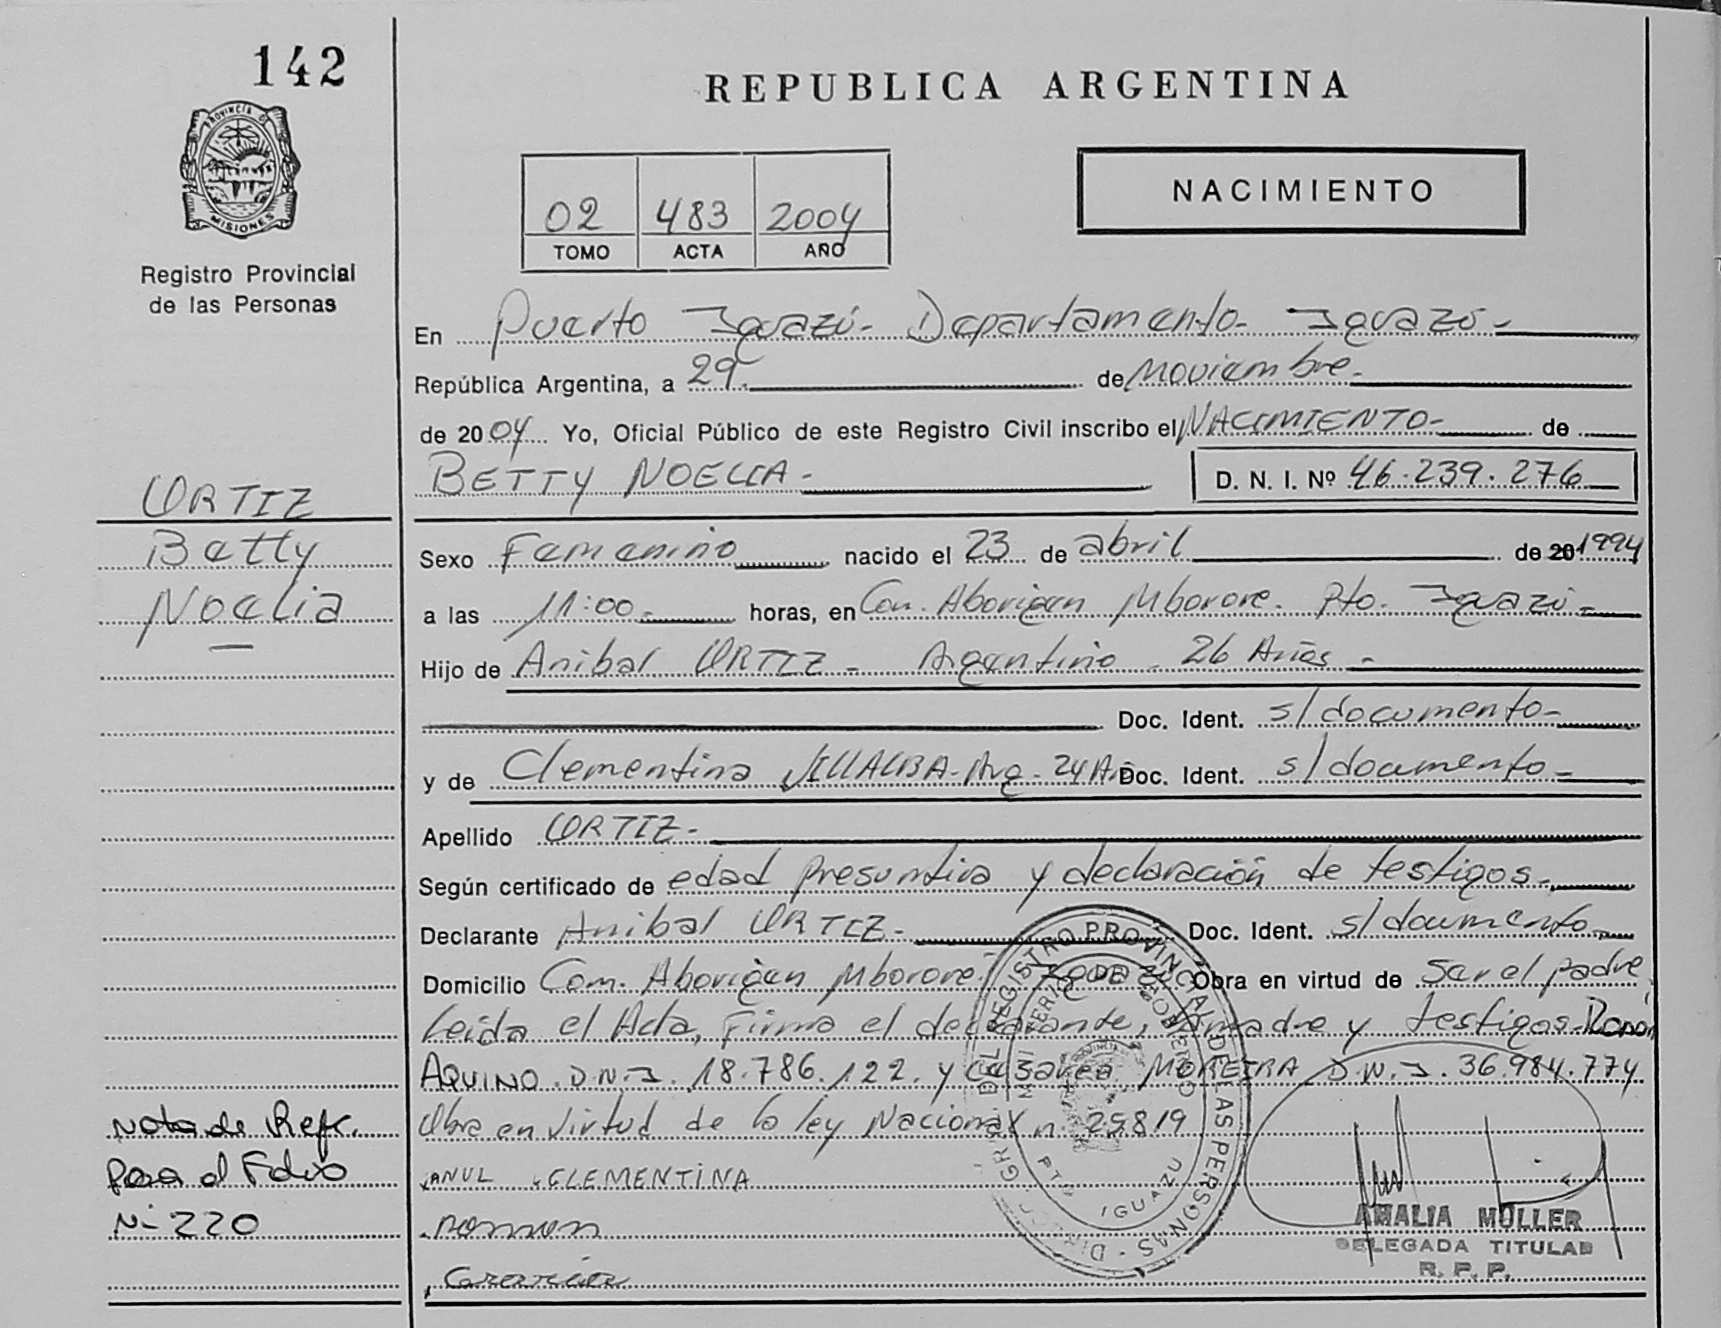 142
REPUBLICA ARGENTINA
PROVINCIA DE
MISIONES
Registro Provincial
de las Personas
02 483 2004
TOMO ACTA AÑO
NACIMIENTO
En Puerto Iguazú- Departamento- Iguazú-
República Argentina, a 29.- de Noviembre.-
de 2004 Yo, Oficial Público de este Registro Civil inscribo el NACIMIENTO- de
BETTY NOELIA- D. N. I. Nº 46.239.276
ORTIZ
Betty
Noelia
Sexo Femenino nacido el 23 de abril de 20 1994
a las 11:00.- horas, en Com. Aborigen Mborore. Pto. Iguazú-
Hijo de Anibal ORTIZ- Argentino- 26 Años-
Doc. Ident. s/documento-
y de Clementina VILLALBA- Arg- 24 Añ Doc. Ident. s/documento-
Apellido ORTIZ-
Según certificado de edad presuntiva y declaración de testigos.-
Declarante Anibal ORTIZ- Doc. Ident. s/documento-
Domicilio Com. Aborigen Mborore. Iguazú Obra en virtud de Ser el padre
Leída el Acta, Firma el declarante, la madre y testigos-
AQUINO. D.N.I. 18.786.122. y MOREIRA D.N.I. 36.984.774
Obra en virtud de la ley Nacional n- 25819
Nota de Ref.
Pasa al Folio
N- 220
ANUL CLEMENTINA
Romon
DIRECC. GRAL. DEL REGISTRO PROVINCIAL DE LAS PERSONAS
MINISTERIO DE GOBIERNO
PTO IGUAZU
AMALIA MULLER
DELEGADA TITULAR
R. P. P.